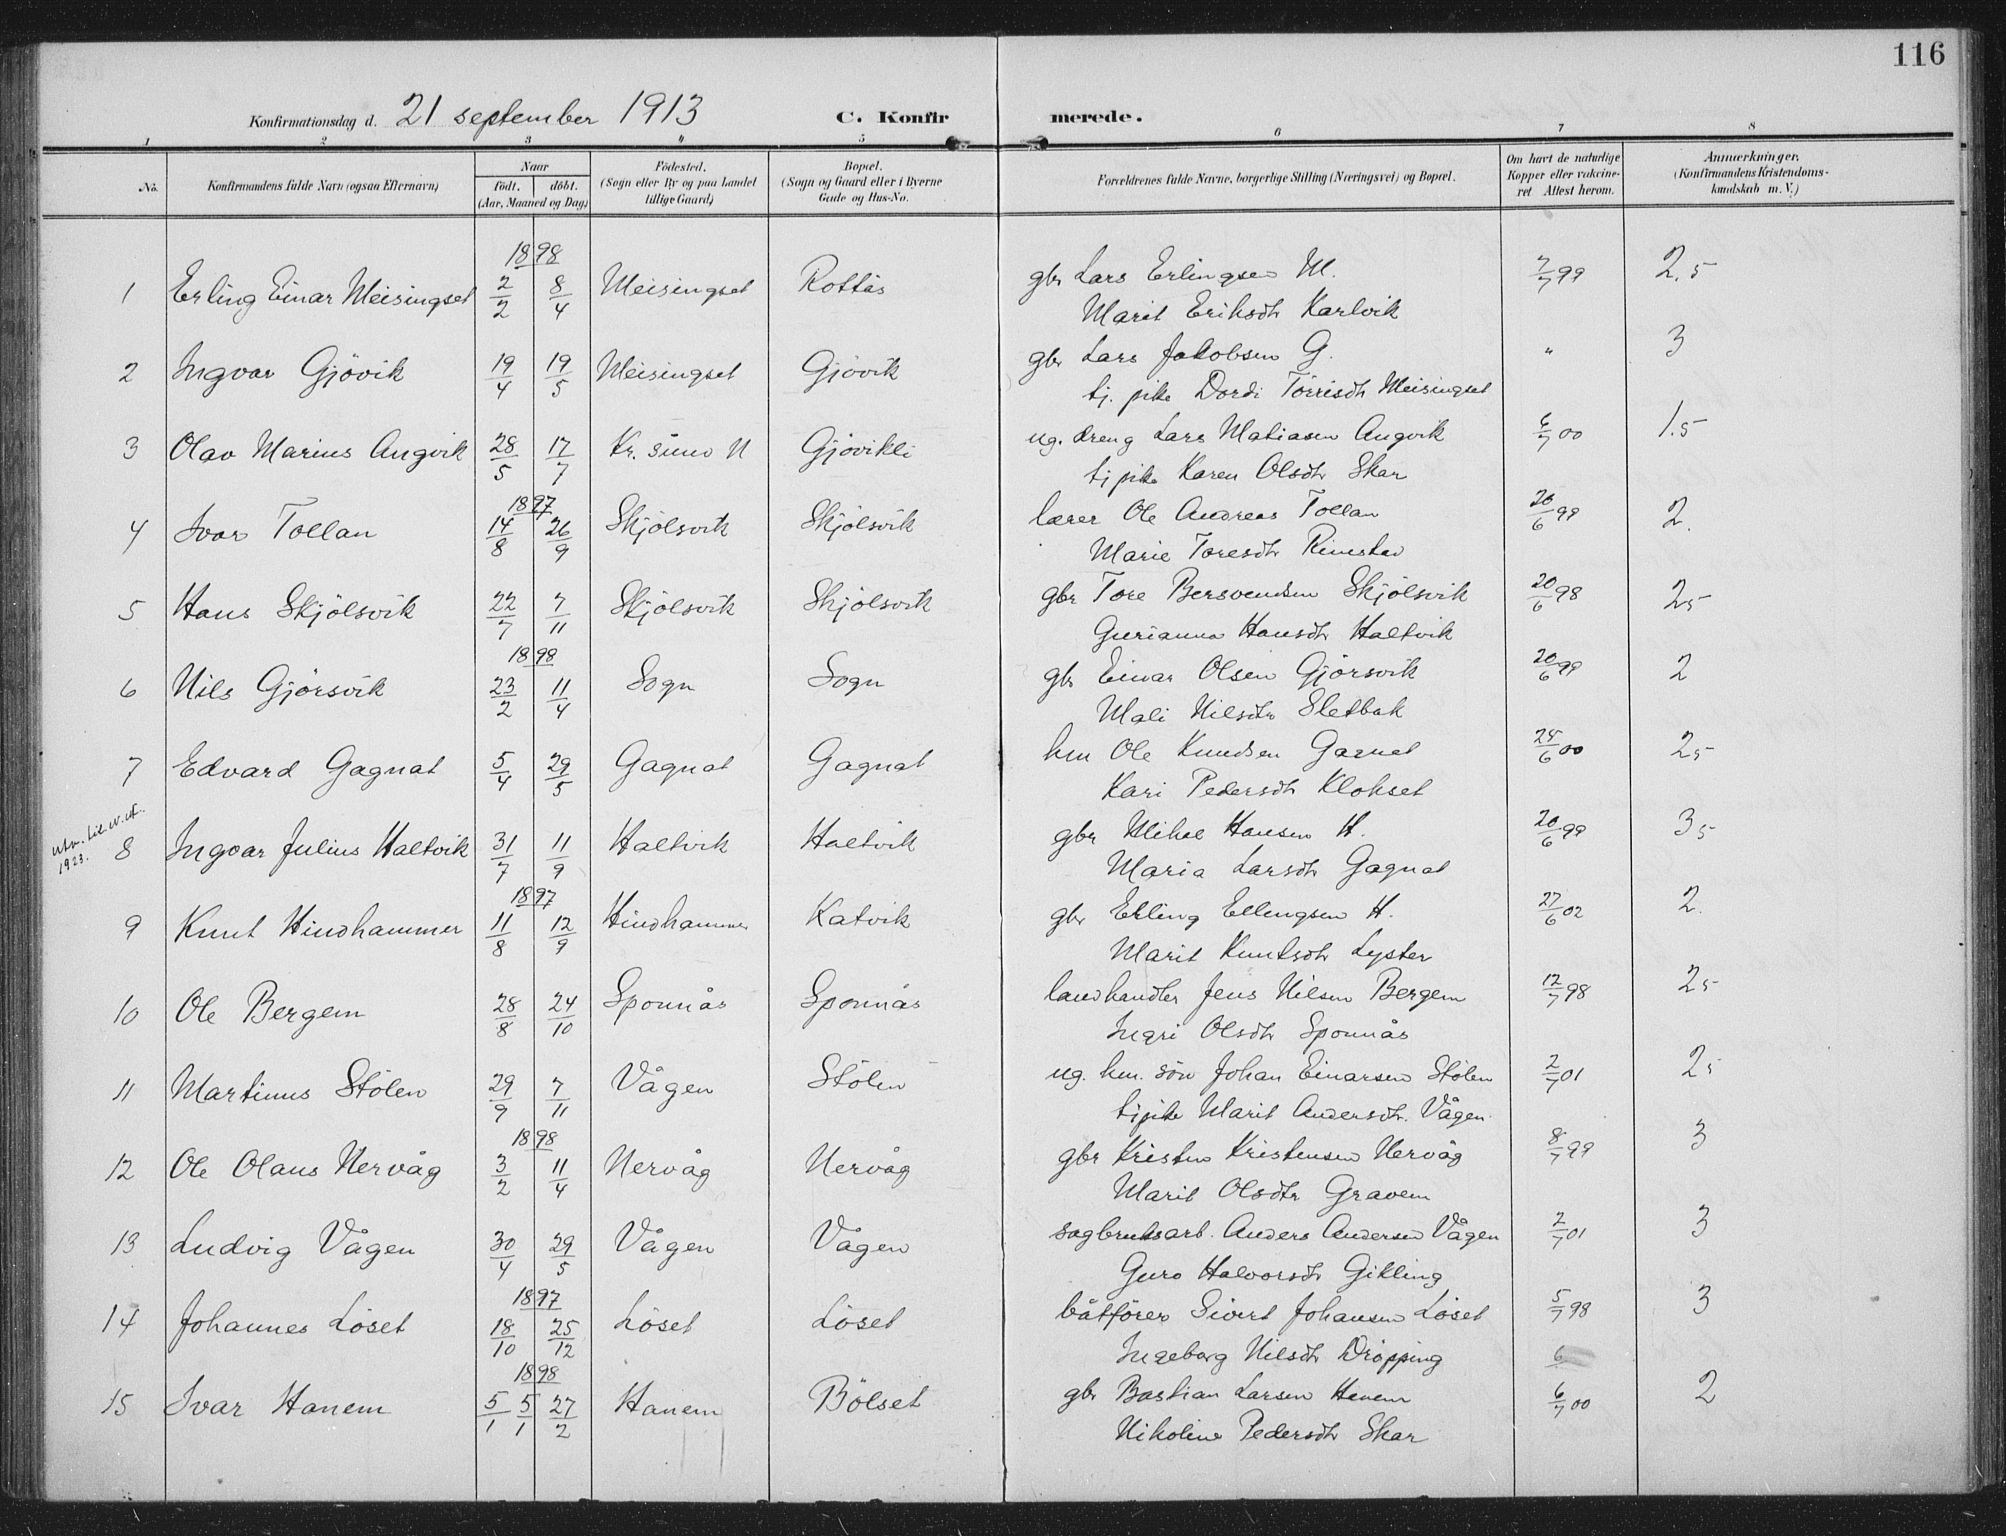 116
Konfirmationsdag d. 21 september 1913 C. Konfirmerede.
1 2 3 4 5 6 7 8
No. Konfirmandens fulde Navn (ogsaa Efternavn) Naar født. døbt. (Aar, Maaned og Dag) Fødested. (Sogn eller By og paa Landet tillige Gaard) Bopæl. (Sogn og Gaard eller i Byerne Gade og Hus-No. Forældrenes fulde Navne, borgerlige Stilling (Næringsvei) og Bopæl. Om havt de naturlige Kopper eller vakcineret Attest herom. Anmærkninger. (Konfirmandens Kristendomskundskab m. V.)
1898
1 Erling Einar Meisingset 2/2 8/4 Meisingset Rottås gbr Lars Erlingsen M. 7/7 99 2.5
Marit Eriksdtr Karlvik
2 Ingvar Gjövik 19/4 19/5 Meisingset Gjövik gbr Lars Jakobsen G. " 3
tj. pike Dordi Törrisdtr Meisingset
3 Olav Marius Angvik 28/5 17/7 Kr. sund N Gjövikli ug. dreng Lars Matiasen Angvik 6/7 00 1.5
tj pike Karen Olsdtr Skar
1897
4 Ivar Tollan 14/8 26/9 Skjölsvik Skjölsvik lærer Ole Andreas Tollan 20/6 99 2.
Marie Toresdtr Rimstad
5 Hans Skjölsvik 22/7 7/11 Skjölsvik Skjölsvik gbr Tore Bersvendsen Skjölsvik 20/6 98 25
Gurianna Hansdtr Haltvik
1898
6 Nils Gjörsvik 23/2 11/4 Sogn Sogn gbr Einar Olsen Gjörsvik 20/6 99 2
Mali Nilsdtr Sletbak
7 Edvard Gagnat 5/4 29/5 Gagnat Gagnat hm Ole Knudsen Gagnat 25/6 00 25
Kari Pedersdtr Klokset
utm. til 1923.
8 Ingvar Julius Haltvik 31/7 11/9 Haltvik Haltvik gbr Mikal Hansen H. 20/6 99 35
Maria Larsdtr Gagnat
1897
9 Knut Hindhammer 11/8 12/9 Hindhammer Katvik gbr Erling Ellingsen H. 27/6 02 2.
Marit Knutsdtr Lyster
10 Ole Bergem 28/8 24/10 Sponnås Sponnås landhandler Jens Nilsen Bergem 12/7 98 25
Ingri Olsdtr Sponnås
11 Martinus Stölen 29/9 7/11 Vågen Stölen ug. hm. sön Johan Einarsen Stölen 2/7 01 25
tj pike Marit Andersdtr. Vågen
1898
12 Ole Olaus Nervåg 3/2 11/4 Nervåg Nervåg gbr Kristen Kristensen Nervåg 8/7 99 3
Marit Olsdtr Gravem
13 Ludvig Vågen 30/4 29/5 Vågen Vågen sagbruksarb. Anders Andersen Vågen 2/7 01 3
Guro Halvorsdtr Gikling
1897
14 Johannes Löset 18/10 25/12 Löset Löset båtförer Sivert Johansen Löset 5/7 98 3
Ingeborg Nilsdtr Dröpping 6
1898
15 Ivar Hanem 5/1 5/1 27/2 Hanem Bölset gbr Bastian Larsen Hanem 6/7 00 2
Nikoline Pedersdtr Skar